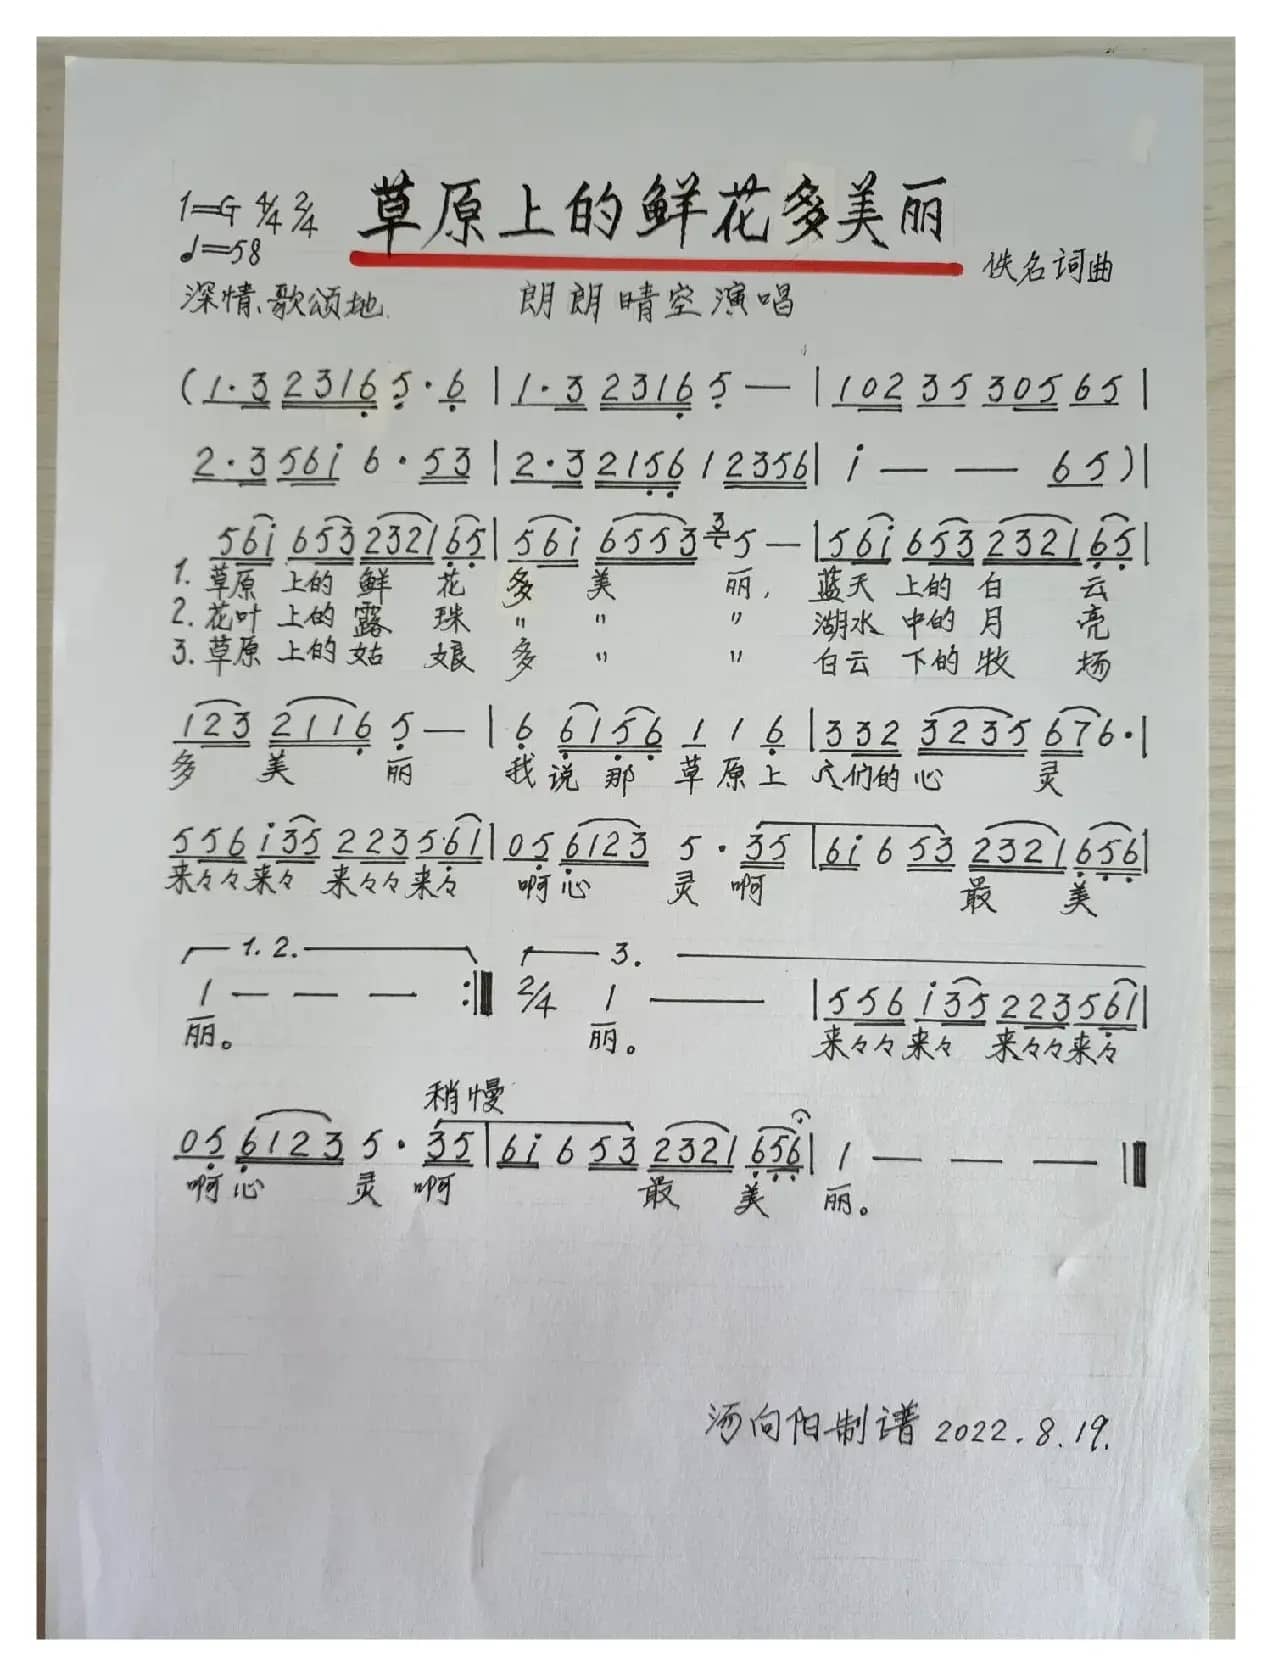 1=G 4/4 2/4 草原上的鲜花多美丽
♩=58 佚名词曲
深情、歌颂地 朗朗晴空演唱
(1·3 2316 5·6 | 1·3 2316 5 — | 102 35 305 65 |
2·3 56i 6·53 | 2·3 2156 1 2356 | i — — 65) |
56i 653 2321 65 | 56i 6553 3 5 — | 56i 653 2321 65 |
1. 草原 上的 鲜 花 多 美 丽, 蓝天 上的 白 云
2. 花叶 上的 露 珠 〃 〃 〃 湖水 中的 月 亮
3. 草原 上的 姑 娘 多 〃 〃 白云 下的 牧 场
123 2116 5 — | 6 6156 1 1 6 | 332 3235 676· |
多 美 丽 我 说 那 草 原 上 人们的 心 灵
556 i35 223 561 | 05 6123 5·35 | 6i 6 53 2321 656 |
来々々来々 来々々来々 啊心 灵 啊 最 美
1. 2. 3.
1 — — — :‖ 2/4 1 — | 556 i35 223 561 |
丽。 丽。 来々々来々 来々々来々
稍慢
05 6123 5·35 | 6i 6 53 2321 656 | 1 — — — ‖
啊心 灵 啊 最 美 丽。
向阳制谱 2022.8.19.